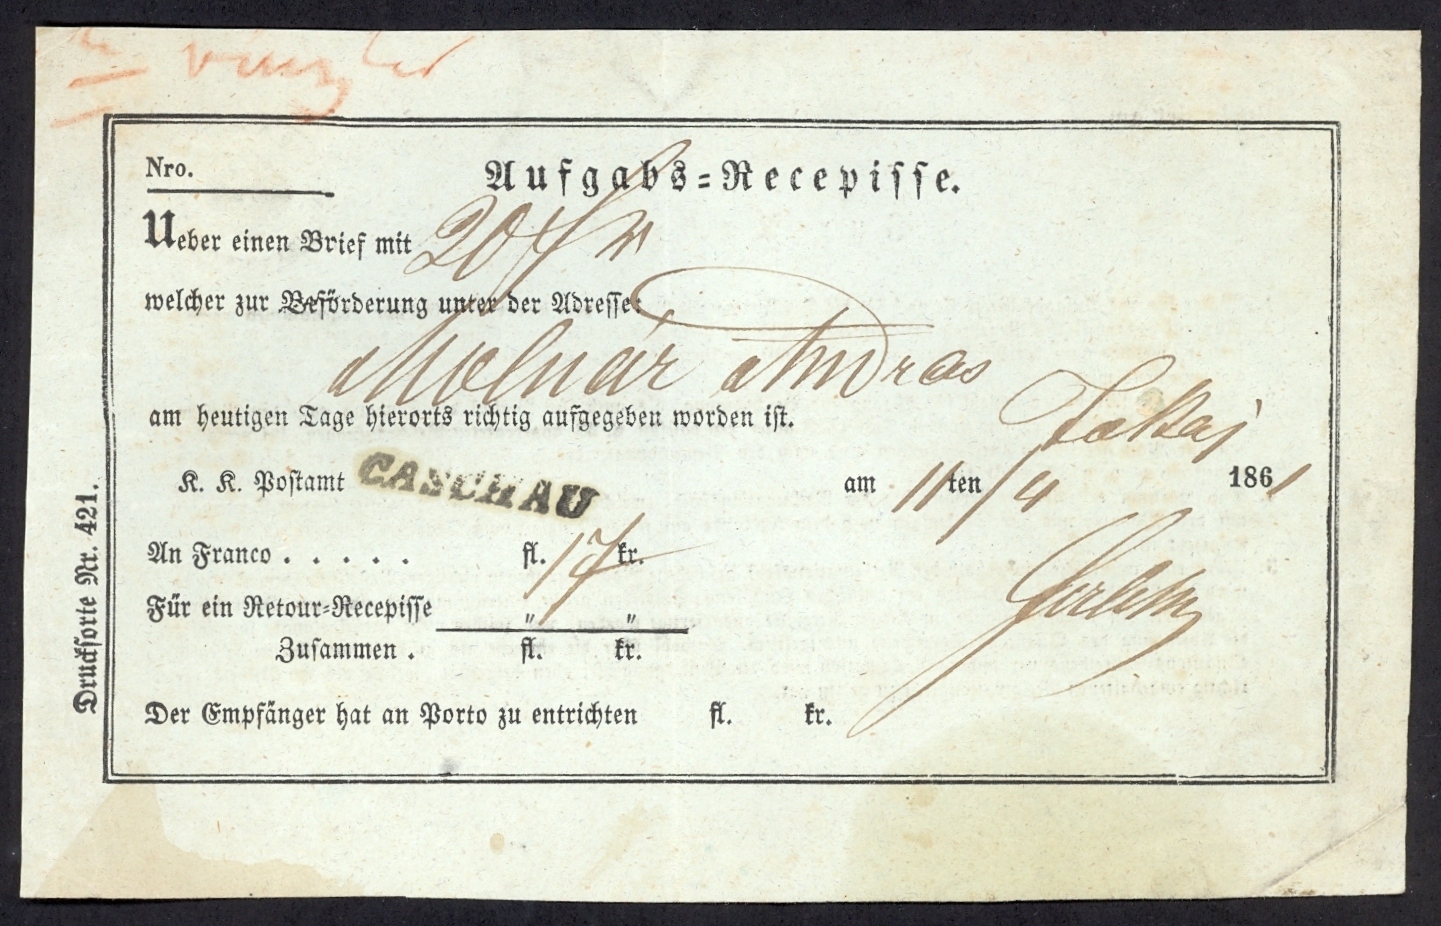 Nro.
Aufgabs=Recepisse.
Ueber einen Brief mit 20 f
welcher zur Beförderung unter der Adresse:
Molnár András
Tokaj
am heutigen Tage hierorts richtig aufgegeben worden ist.
K. K. Postamt CASCHAU am 11ten/4 1861
An Franco . . . . . fl. 17 kr.
Für ein Retour=Recepisse " "
Zusammen . fl. kr.
Der Empfänger hat an Porto zu entrichten fl. kr.
Drucksorte Nr. 421.